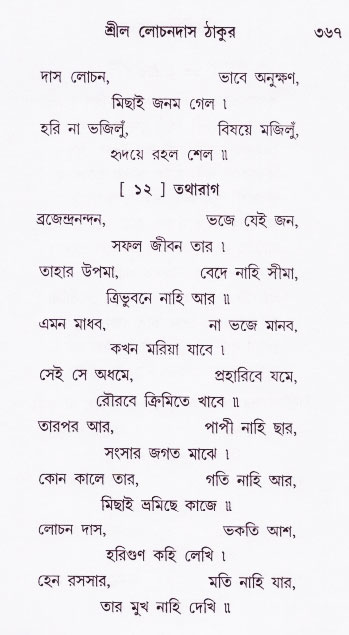 শ্রীল লোচনদাস ঠাকুর ৩৬৭
দাস লোচন, ভাবে অনুক্ষণ,
মিছাই জনম গেল ৷
হরি না ভজিলুঁ, বিষয়ে মজিলুঁ,
হৃদয়ে রহল শেল ॥
[ ১২ ] তথারাগ
ব্রজেন্দ্রনন্দন, ভজে যেই জন,
সফল জীবন তার ৷
তাহার উপমা, বেদে নাহি সীমা,
ত্রিভুবনে নাহি আর ॥
এমন মাধব, না ভজে মানব,
কখন মরিয়া যাবে ৷
সেই সে অধমে, প্রহারিবে যমে,
রৌরবে ক্রিমিতে খাবে ॥
তারপর আর, পাপী নাহি ছার,
সংসার জগত মাঝে ৷
কোন কালে তার, গতি নাহি আর,
মিছাই ভ্রমিছে কাজে ॥
লোচন দাস, ভকতি আশ,
হরিগুণ কহি লেখি ৷
হেন রসসার, মতি নাহি যার,
তার মুখ নাহি দেখি ॥